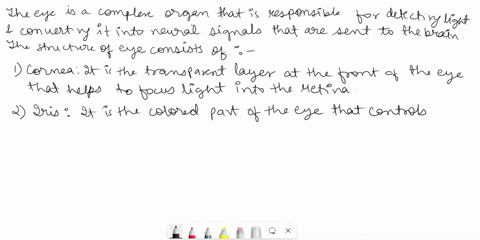 The eye is a complex organ that is responsible for detecting light
& converting it into neural signals that are sent to the brain.
The structure of eye consists of :-
1) Cornea: It is the transparent layer at the front of the eye
that helps to focus light into the retina.
2) Iris: It is the colored part of the eye that controls